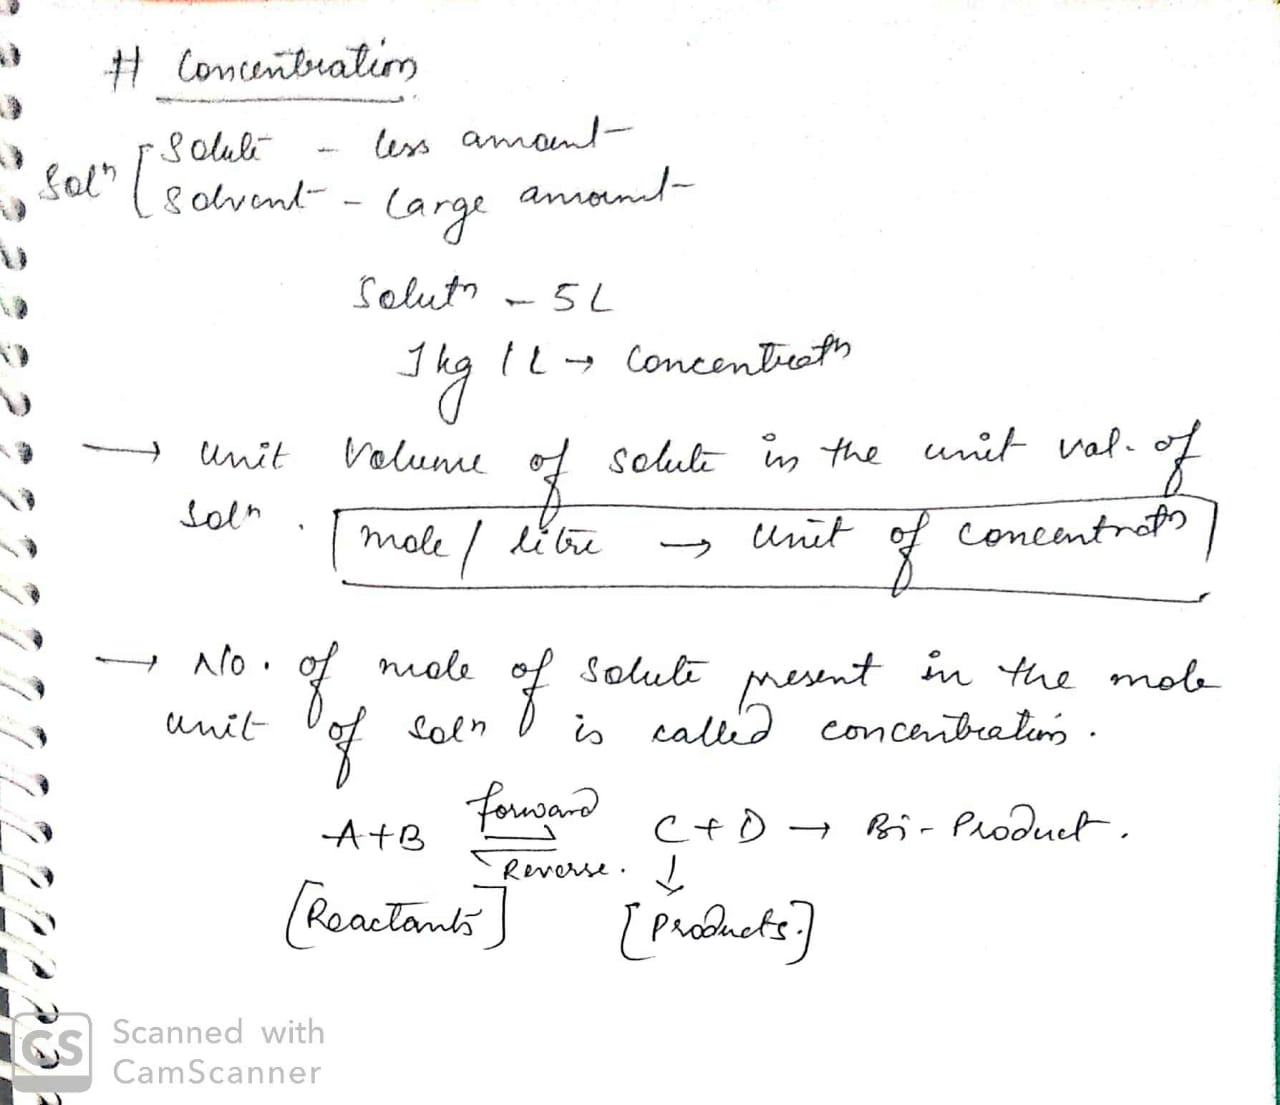 # Concentration
Solute - less amount
Solⁿ [ Solvent - Large amount
Solutⁿ - 5L
1kg / L → Concentratⁿ
→ Unit Volume of solute in the unit vol. of
solⁿ. mole / litre → Unit of concentratⁿ
→ No. of mole of solute present in the mole
unit of solⁿ is called concentration.
forward
A+B ⇌ C + D → Bi-Product.
Reverse. ↓
[Reactants] [Products.]
CS Scanned with
CamScanner